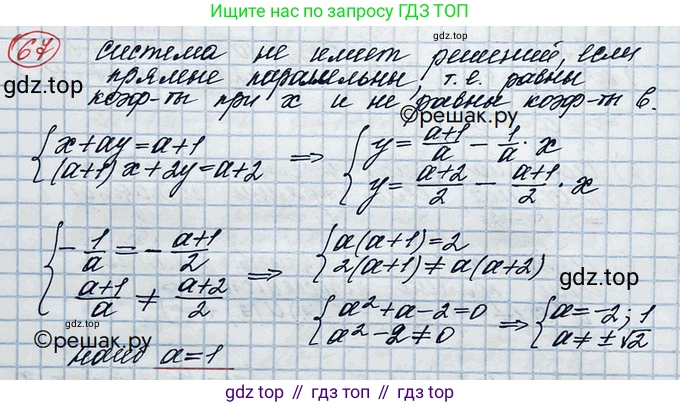 Ищите нас по запросу ГДЗ ТОП
67
система не имеет решений, если
gdz.top
прямые параллельны, т.е. равны
коэф-ты при x и не равны коэф-ты b.
©reшak.ру
{ x+ay=a+1
(a+1)x+2y=a+2 ⇒ { y = (a+1)/a - 1/a · x
y = (a+2)/2 - (a+1)/2 · x
{ -1/a = -(a+1)/2
(a+1)/a ≠ (a+2)/2 ⇒ { a(a+1)=2
2(a+1)≠a(a+2)
gdz.top
{ a²+a-2=0
a²-2≠0 ⇒ { a=-2; 1
a≠±√2
©решак.ру
a=1
gdz.top // гдз.топ // gdz.top // гдз.топ